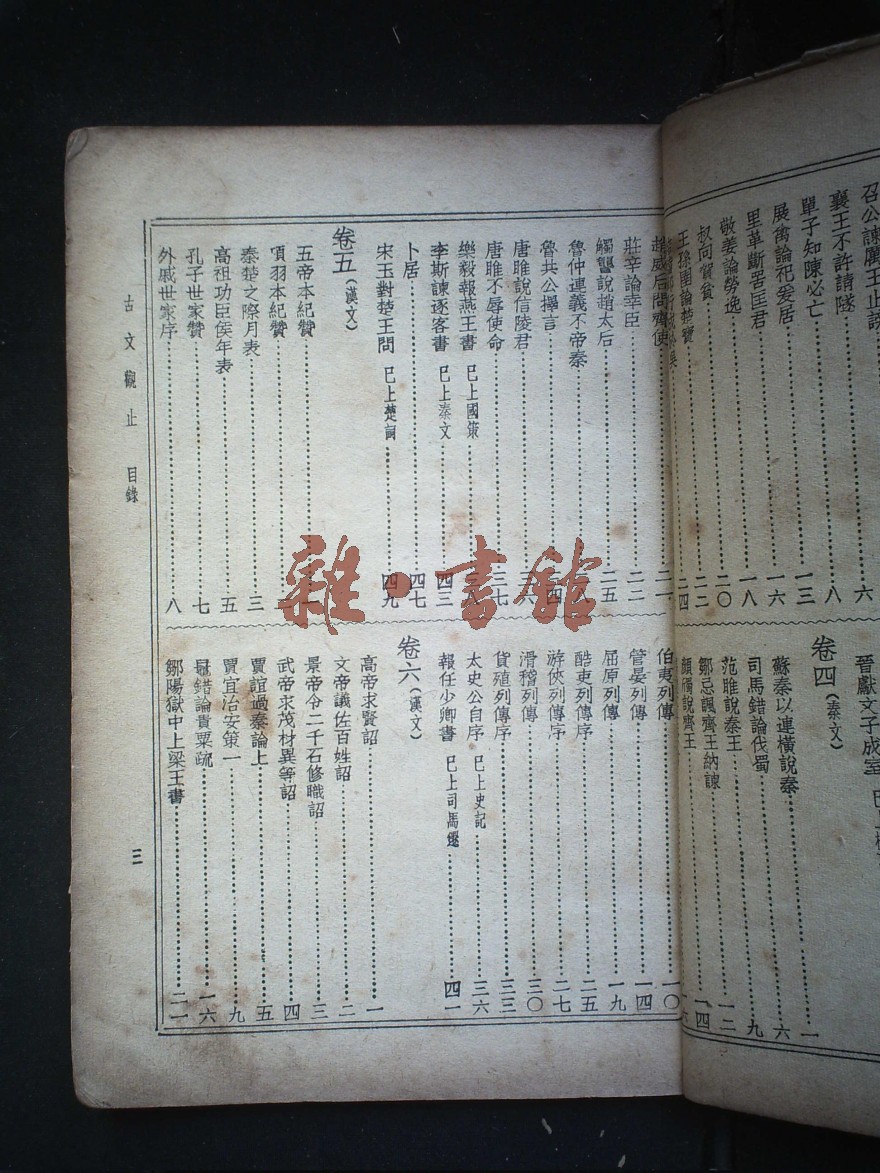 召公諫厲王止謗……六
襄王不許請隧……八
單子知陳必亡……一三
展禽論祀爰居……一六
里革斷罟匡君……一八
敬姜論勞逸……二〇
叔向賀貧……二二
王孫圉論楚寶……二四
晉獻文子成室
卷四(秦文)
蘇秦以連橫說秦……一
司馬錯論伐蜀……六
范雎說秦王……九
鄒忌諷齊王納諫……一二
顏斶說齊王
趙威后問齊使……二一
莊辛論幸臣……二二
觸讋說趙太后……二五
魯仲連義不帝秦
魯共公擇言
唐雎說信陵君
唐雎不辱使命……三七
樂毅報燕王書 已上國策
李斯諫逐客書 已上秦文……四三
卜居……四七
宋玉對楚王問 已上楚詞……四九
卷五(漢文)
五帝本紀贊……一
項羽本紀贊
秦楚之際月表……三
高祖功臣侯年表……五
孔子世家贊……七
外戚世家序……八
伯夷列傳……一〇
管晏列傳……一四
屈原列傳……一九
酷吏列傳序……二五
游俠列傳序……二七
滑稽列傳……三〇
貨殖列傳序……三三
太史公自序 已上史記……三六
報任少卿書 已上司馬遷……四一
卷六(漢文)
高帝求賢詔……一
文帝議佐百姓詔……二
景帝令二千石修職詔……三
武帝求茂材異等詔……四
賈誼過秦論上……五
賈誼治安策一……九
鼂錯論貴粟疏……一六
鄒陽獄中上梁王書……二一
古文觀止 目錄
三
雜·書館